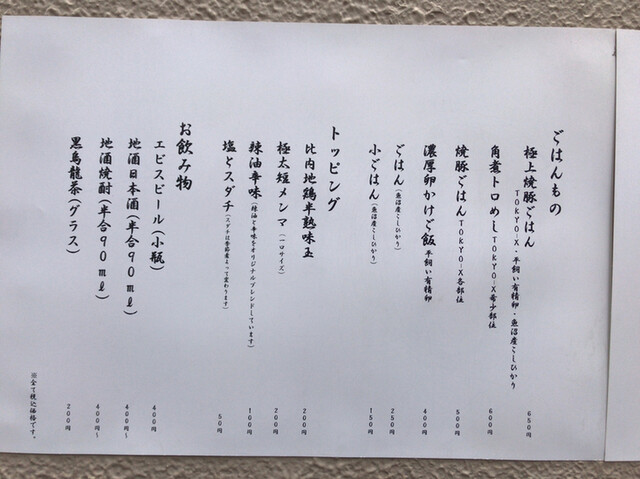 ごはんもの
極上焼豚ごはん TOKYO-X・平飼い有精卵・魚沼産こしひかり 650円
角煮トロめし TOKYO-X希少部位 600円
焼豚ごはん TOKYO-X各部位 500円
濃厚卵かけご飯 平飼い有精卵 400円
ごはん(魚沼産こしひかり) 250円
小ごはん(魚沼産こしひかり) 150円
トッピング
比内地鶏半熟味玉 200円
極太短メンマ(一口サイズ) 200円
辣油辛味(辣油と辛味をオリジナルブレンドしています) 100円
塩とスダチ(スダチは季節産よって変わります) 50円
お飲み物
エビスビール(小瓶) 400円
地酒日本酒(半合90ml) 400円~
地酒焼酎(半合90ml) 400円~
黒烏龍茶(グラス) 200円
※全て税込価格です。